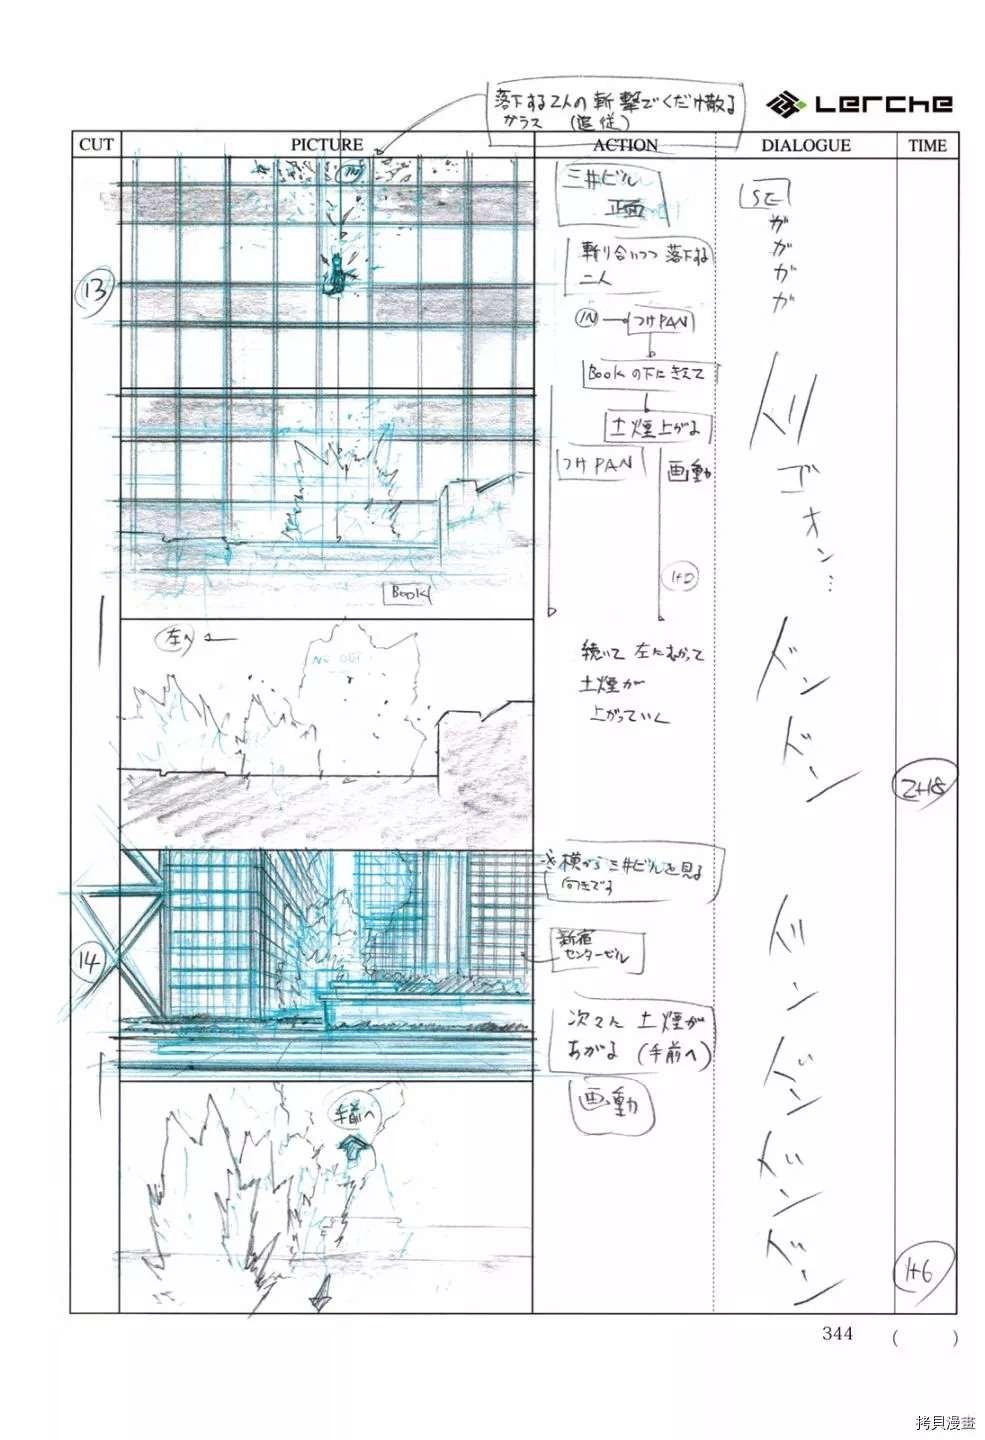 落下する2人の斬撃でくだけ散る
ガラス (追従)
Lerche
CUT
PICTURE
ACTION
DIALOGUE
TIME
13
IN
三井ビル
正面
斬り合いつつ落下する
二人
IN
つけPAN
Bookの下にきえて
土煙上がる
つけPAN
画動
1+0
BOOK
SE
ガ
ガ
ガ
ガ
ドリ
ゴ
オ
ン…
左へ
NO OUT
続いて左にむかって
土煙が
上がっていく
ドン
ドーン
2+18
14
横から三井ビルを見る
向きです
新宿
センタービル
次々に土煙が
あがる(手前へ)
画動
手前へ
ドーン
ドーン
ドーン
ドーン
1+6
344
( )
拷貝漫畫